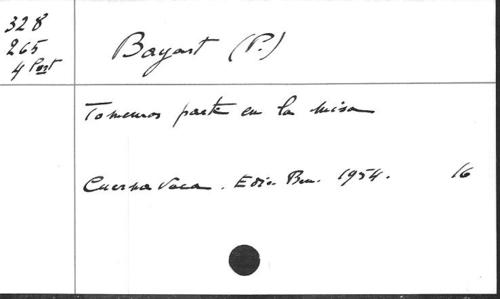 328
265
4 Port
Bayart (P.)
Tomemos parte en la misa
Cuernavaca. Edic. Ben. 1954. 16